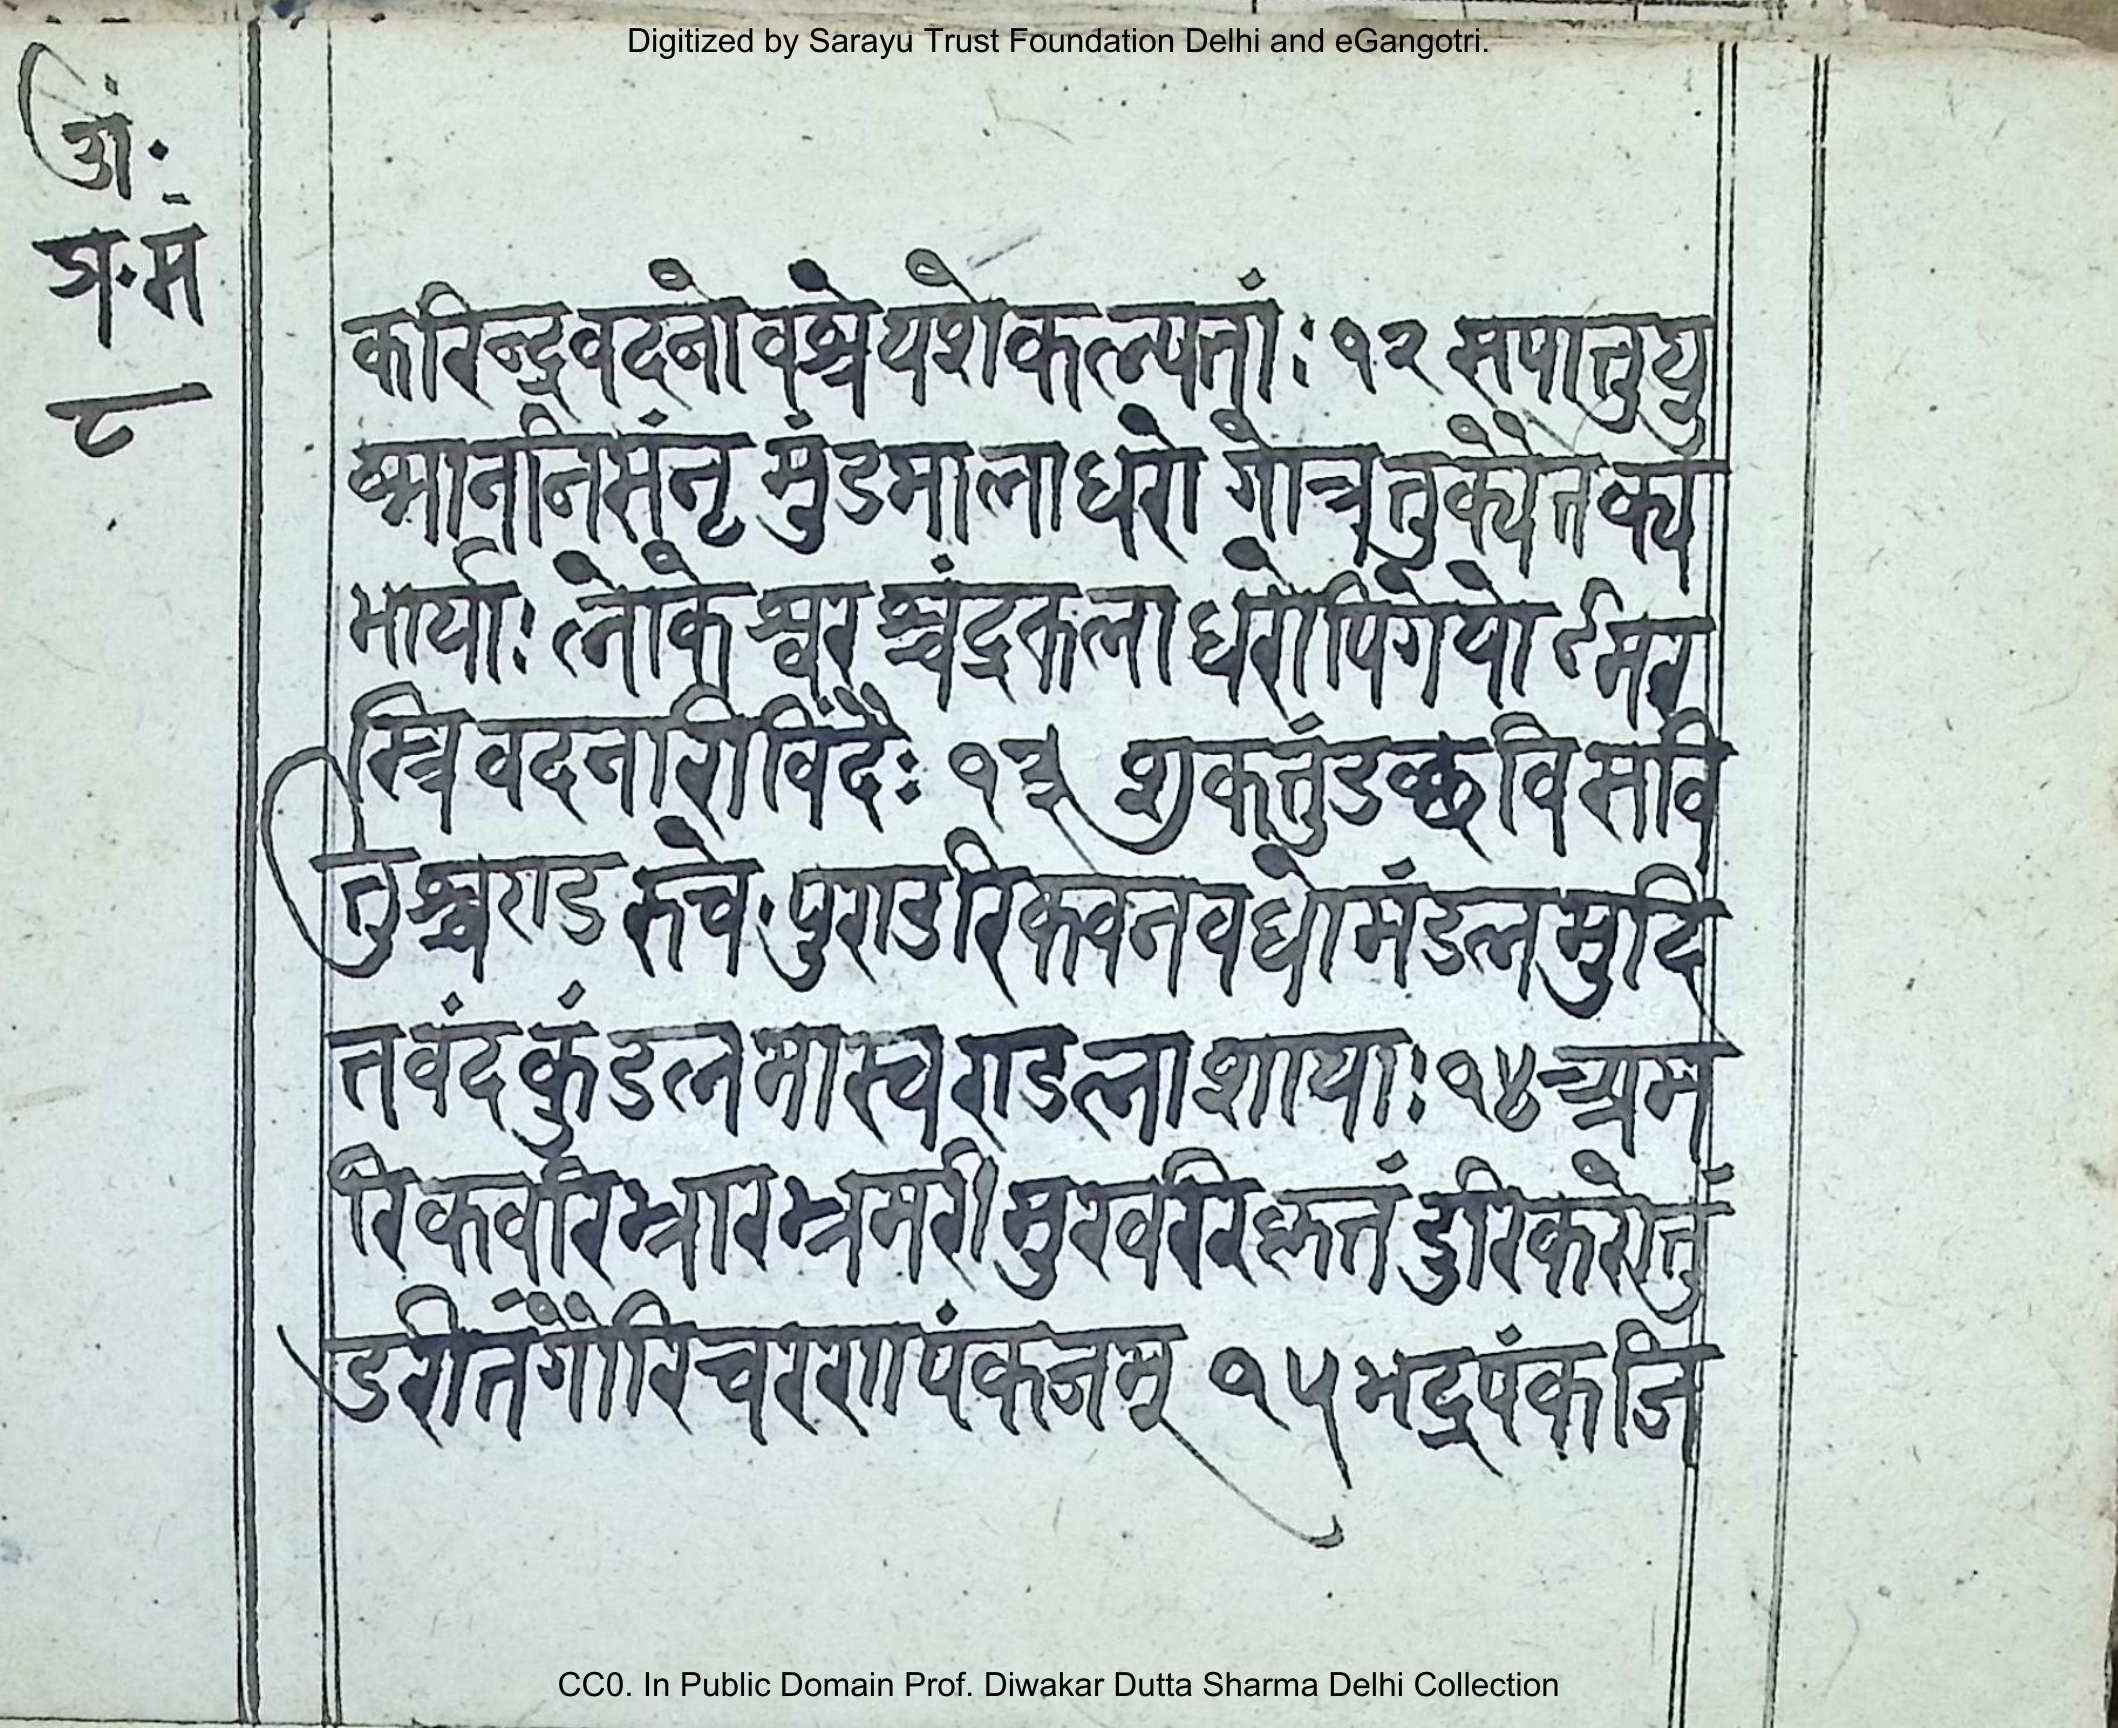 Digitized by Sarayu Trust Foundation Delhi and eGangotri.
अं॰
ग्र॰ मं
८
करिन्द्रवदनो वश्रेयशे कल्प्यतां: १२ स पातु यु
ष्मानानिसंनृ मुंडमालाधरो गोत्रतुक्ये तक्य
भार्या: लोकेश्वरश्चंद्रकलाधरोपिगेयो ऽमर
स्त्रिवदनारीविंदै: १३ शुकतुंडच्छवि सवि
तुश्चराड रुचे॰ पुराडरिकवनवधो मंडलमुदि
त वंद कुंडलमास्वराडलाशाया: १४ अम
रिकवरिभ्रारभ्रमरी मुखरिह्मतं डुरिकरोतुं
डरीतं गौरिचररापंकजम् १५ भद्रपंकजि
CC0. In Public Domain Prof. Diwakar Dutta Sharma Delhi Collection